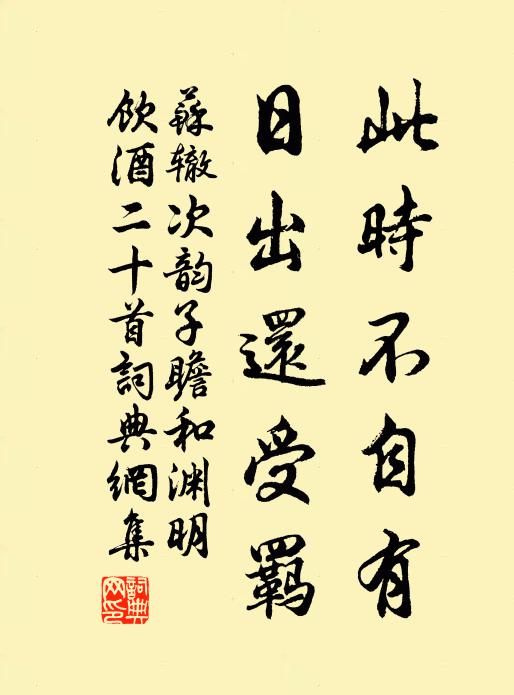 此時不自有
日出還受羈
蘇辙次韵子瞻和渊明
飲酒二十首詞典網集
詞典
网印